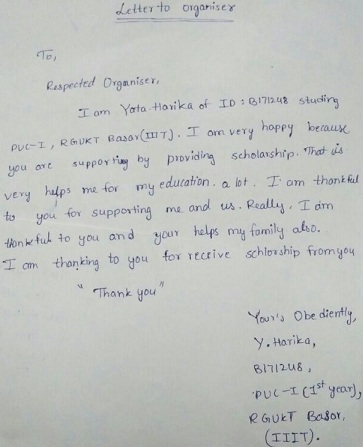 Letter to organiser
To,
Respected Organiser,
I am Yata Harika of ID : B171248 studing
PUC-I, RGUKT Basar(IIIT). I am very happy because
you are supporing by providing scholarship. That is
very helps me for my education. a lot. I am thankful
to you for supporting me and us. Really, I am
thonkful to you and your helps my family also.
I am thanking to you for receive schlorship from you
" Thank you "
Your's Obediently,
Y. Harika,
B171248,
PUC-I (1st year),
RGUKT Basar,
(IIIT).